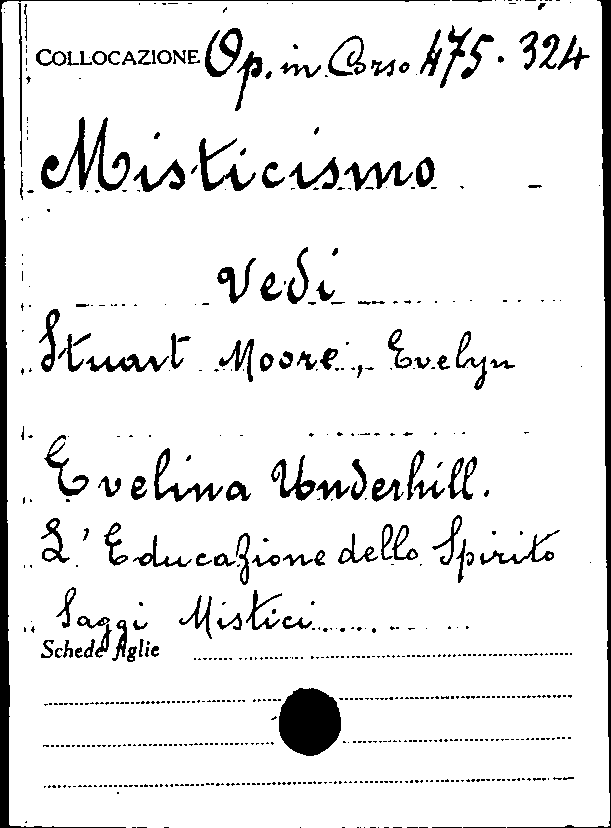 COLLOCAZIONE Op. in Corso 475. 324
Misticismo
Vedi
Stuart Moore, Evelyn
Evelina Underhill.
L'Educazione dello Spirito
Saggi Mistici
Schede figlie